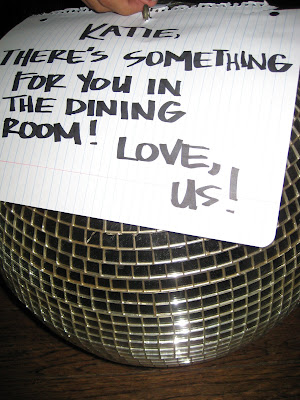 KATIE,
THERE'S SOMETHING
FOR YOU IN
THE DINING
ROOM! LOVE,
US!